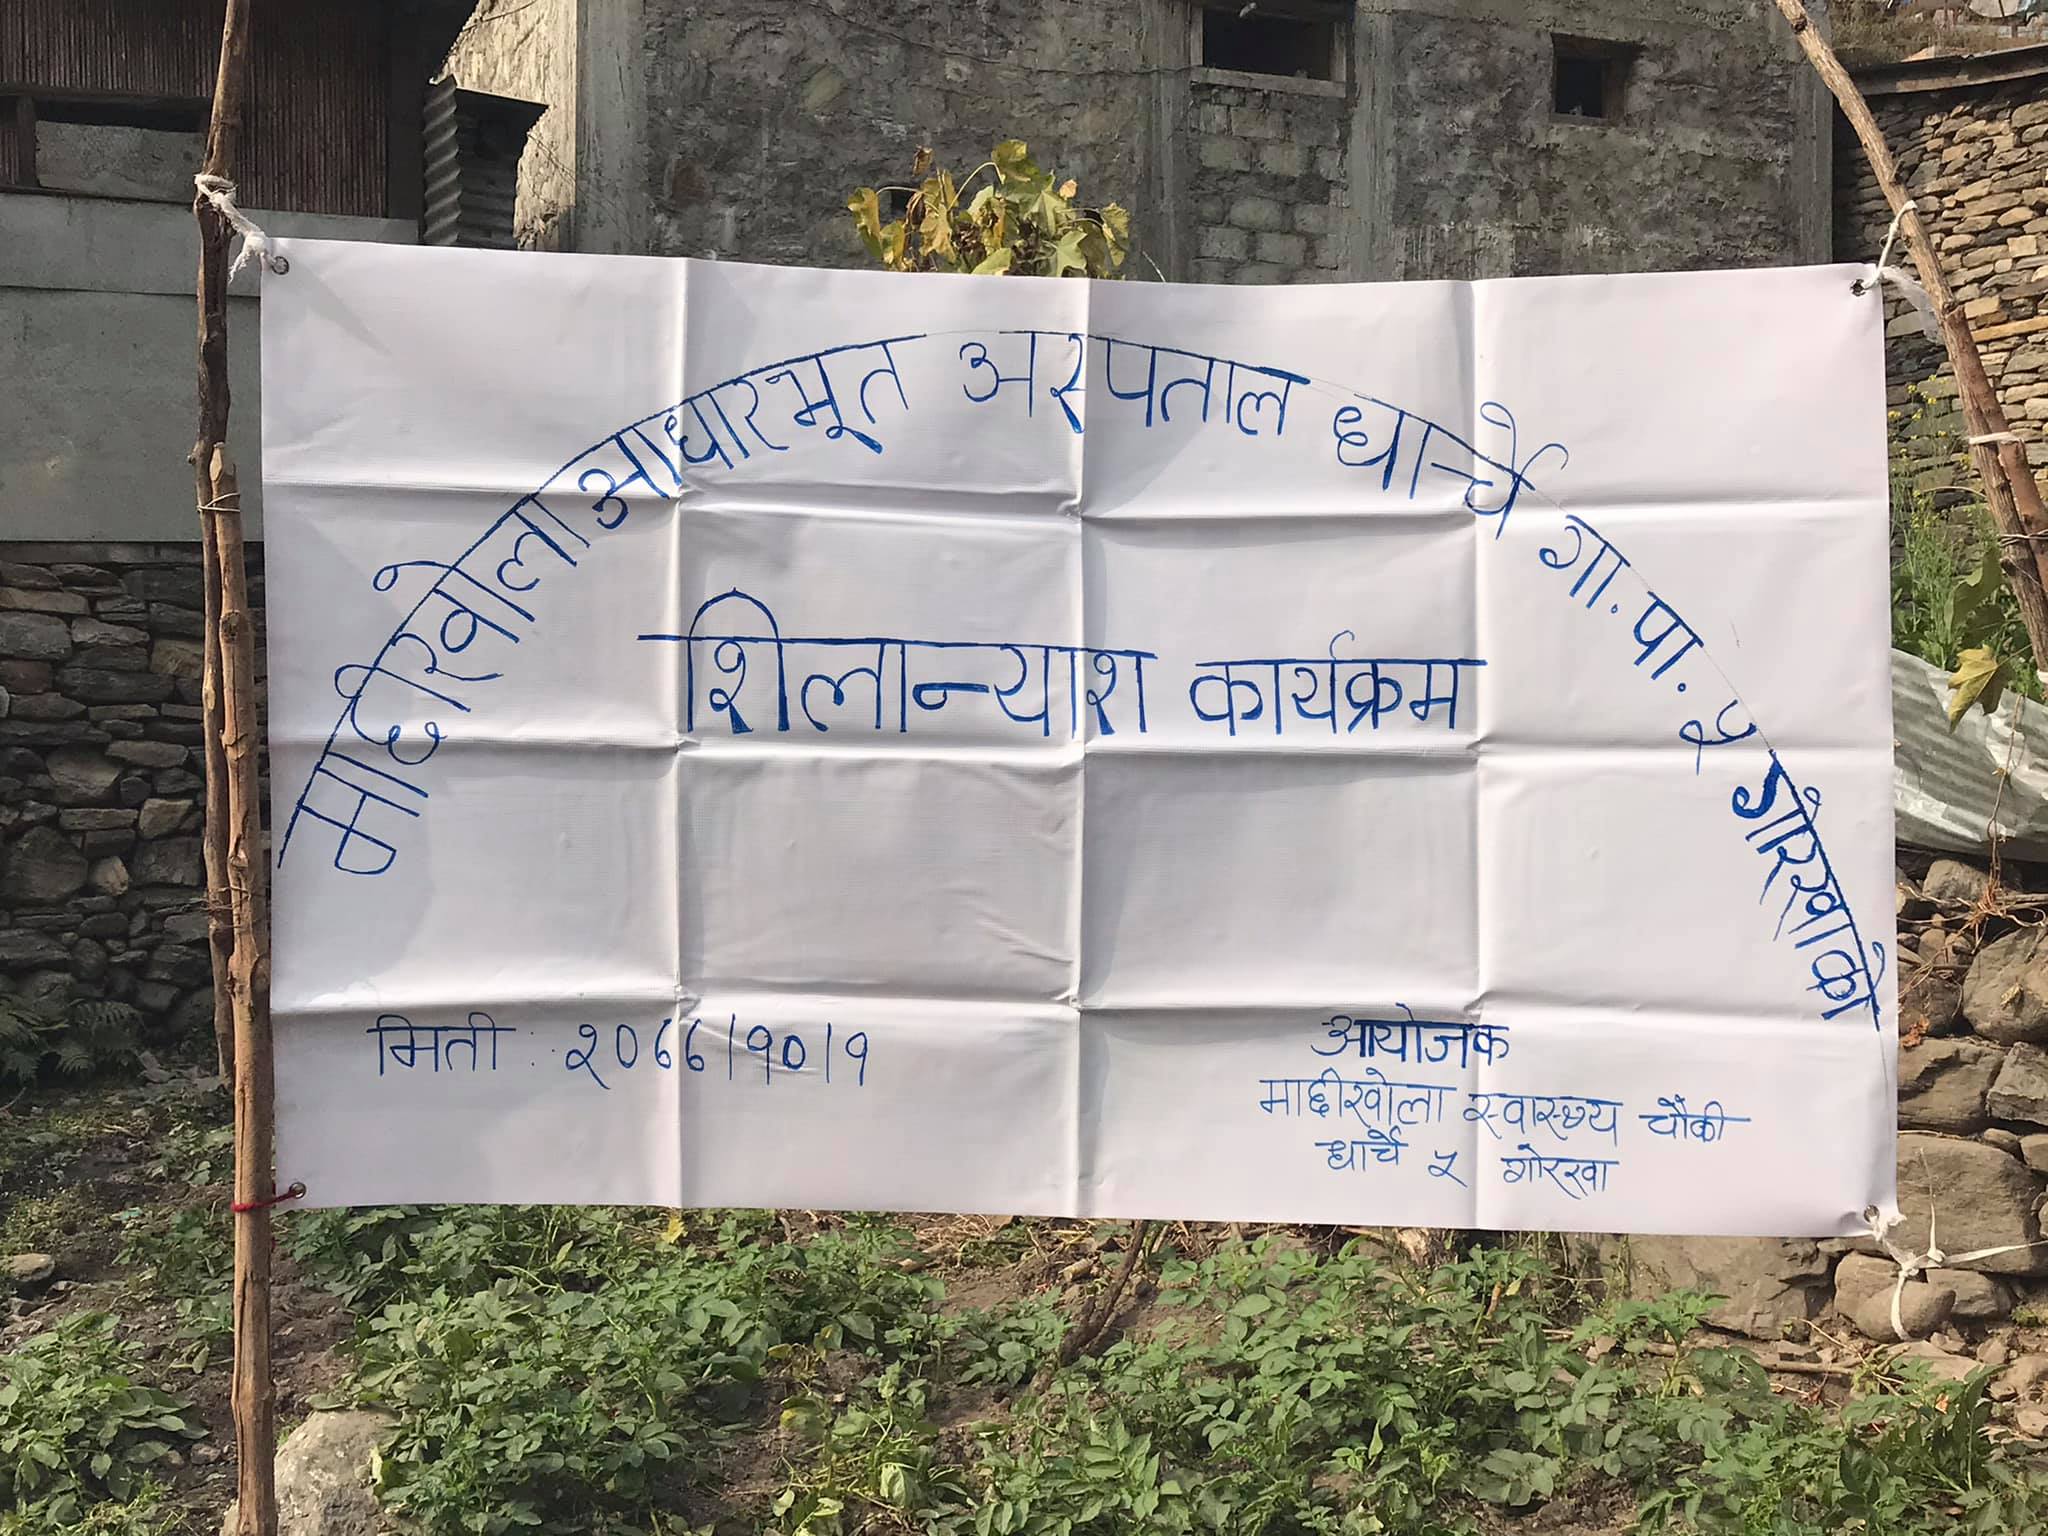 माछीखोला आधारभूत अस्पताल धार्चे गा.पा. ५ गोरखाको
शिलान्याश कार्यक्रम
मिती : २०७७।१०।१
आयोजक
माछीखोला स्वास्थ्य चौकी
धार्चे ५ गोरखा